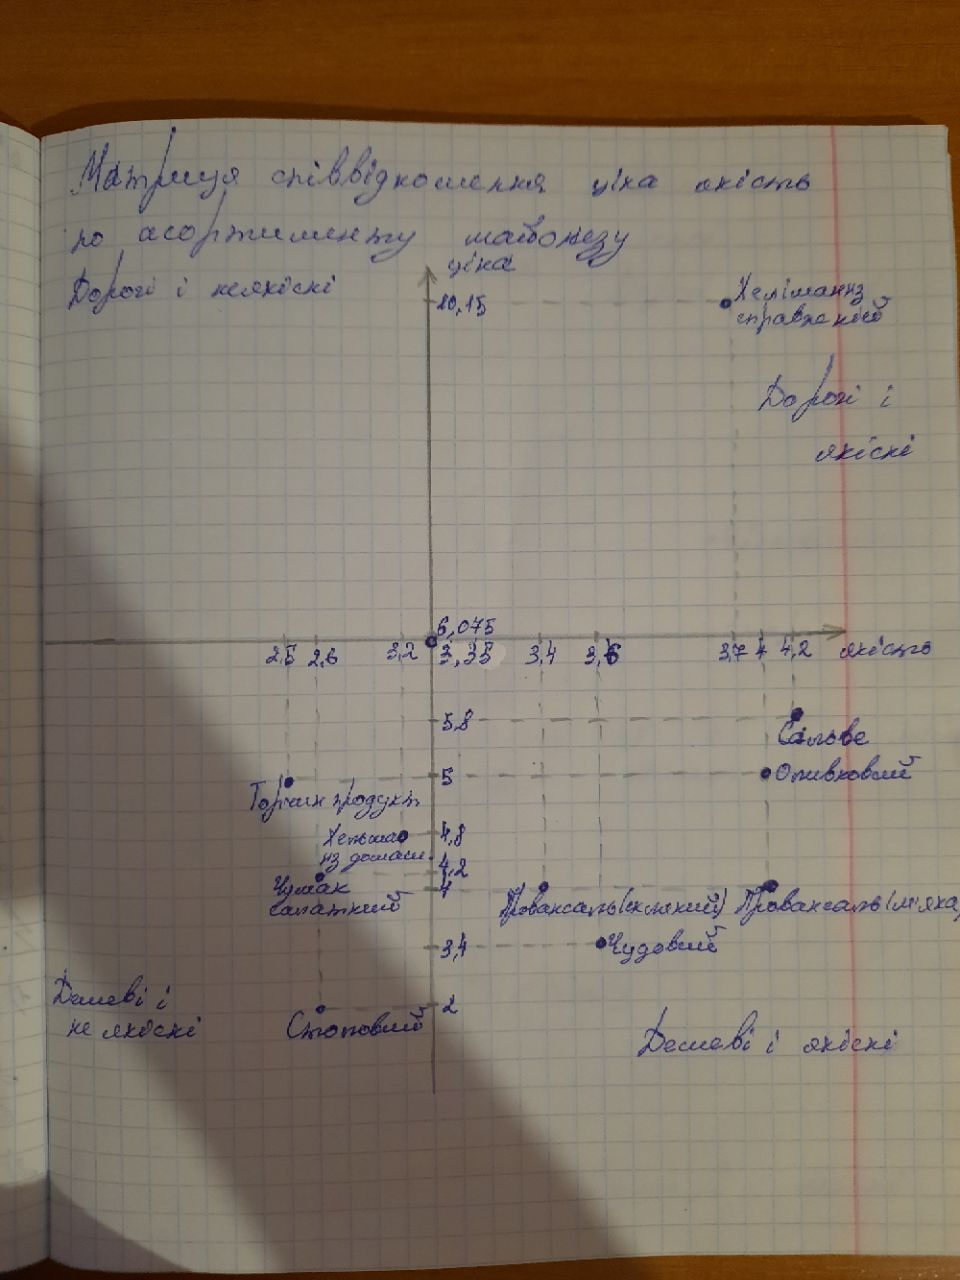 Матриця співвідношення ціна якість
по асортименту майонезу
ціна
Дорогі і неякісні
20,15
Хелманнз
справжній
Дорогі і
якісні
6,075
2,5 2,6 3,2 3,35 3,4 3,6 3,7 4 4,2 якість
5,8
Салове
5
Оливковий
Торчин продукт
4,8
Хельма
нз домаш.
4,2
Чумак
4
салатний
Провансаль(ніжний) Провансаль(м'яка)
3,4
Чудовий
Дешеві і
не якісні
2
Столовий
Дешеві і якісні